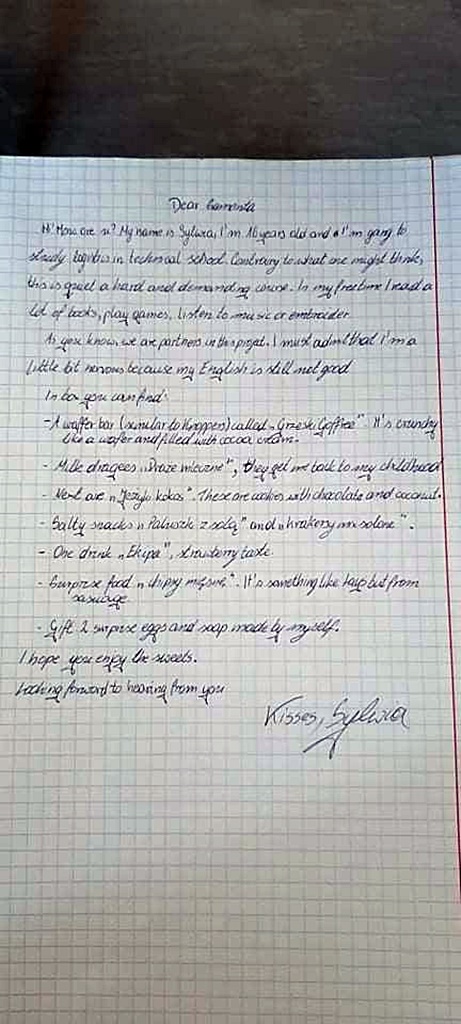 Dear
Hi! How are u? My name is Sylwia, I'm 16 years old and I'm gang to
study logistics in technical school. Contrary to what one might think,
this is quiet a hard and demanding course. In my free time I read a
lot of books, play games, listen to music or embroider.
As you know, we are partners in this projet. I must admit that I'm a
little bit nervous because my English is still not good
In box you can find:
- A waffer bar (similar to Knoppers) called „Grześki Gofree". It's crunchy
like a wafer and filled with cocoa cream.
- Milk dragees „Draże mleczne", they get me back to my childhood
- Next are „Jeżyki kokos". These are cookies with chocolate and coconut.
- Salty snacks „Paluszki z solą" and „Krakersy solone".
- One drink „Ekipa", strawberry taste.
- Surprise food „chipsy mięsne". It's something like lays but from
sausage.
- Gift 2 surprise eggs and soap made by myself.
I hope you enjoy the sweets.
Looking forward to hearing from you
Kisses, Sylwia